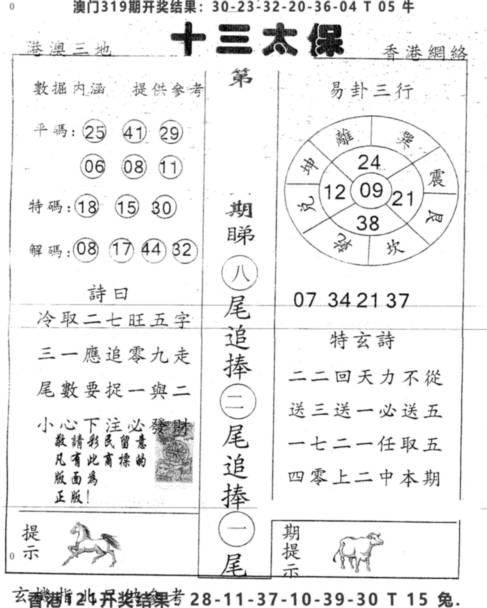 澳门319期开奖结果：30-23-32-20-36-04 T 05 牛
港澳三地
十三太保
香港網絡
數据内涵 提供參考
平碼：25 41 29
06 08 11
特碼：18 15 30
解碼：08 17 44 32
詩曰
冷取二七旺五字
三一應追零九走
尾數要捉一與二
小心下注必發財
敬請彩民留意
凡有此商標的
版面爲
正版！
提示
第
期
睇
八
尾
追
捧
二
尾
追
捧
一
尾
易卦三行
離
巽
坤
震
兌
艮
乾
坎
24
12 09 21
38
07 34 21 37
特玄詩
二二回天力不從
送三送一必送五
一七二一任取五
四零上二中本期
期提示
香港121开奖结果：28-11-37-10-39-30 T 15 兔.